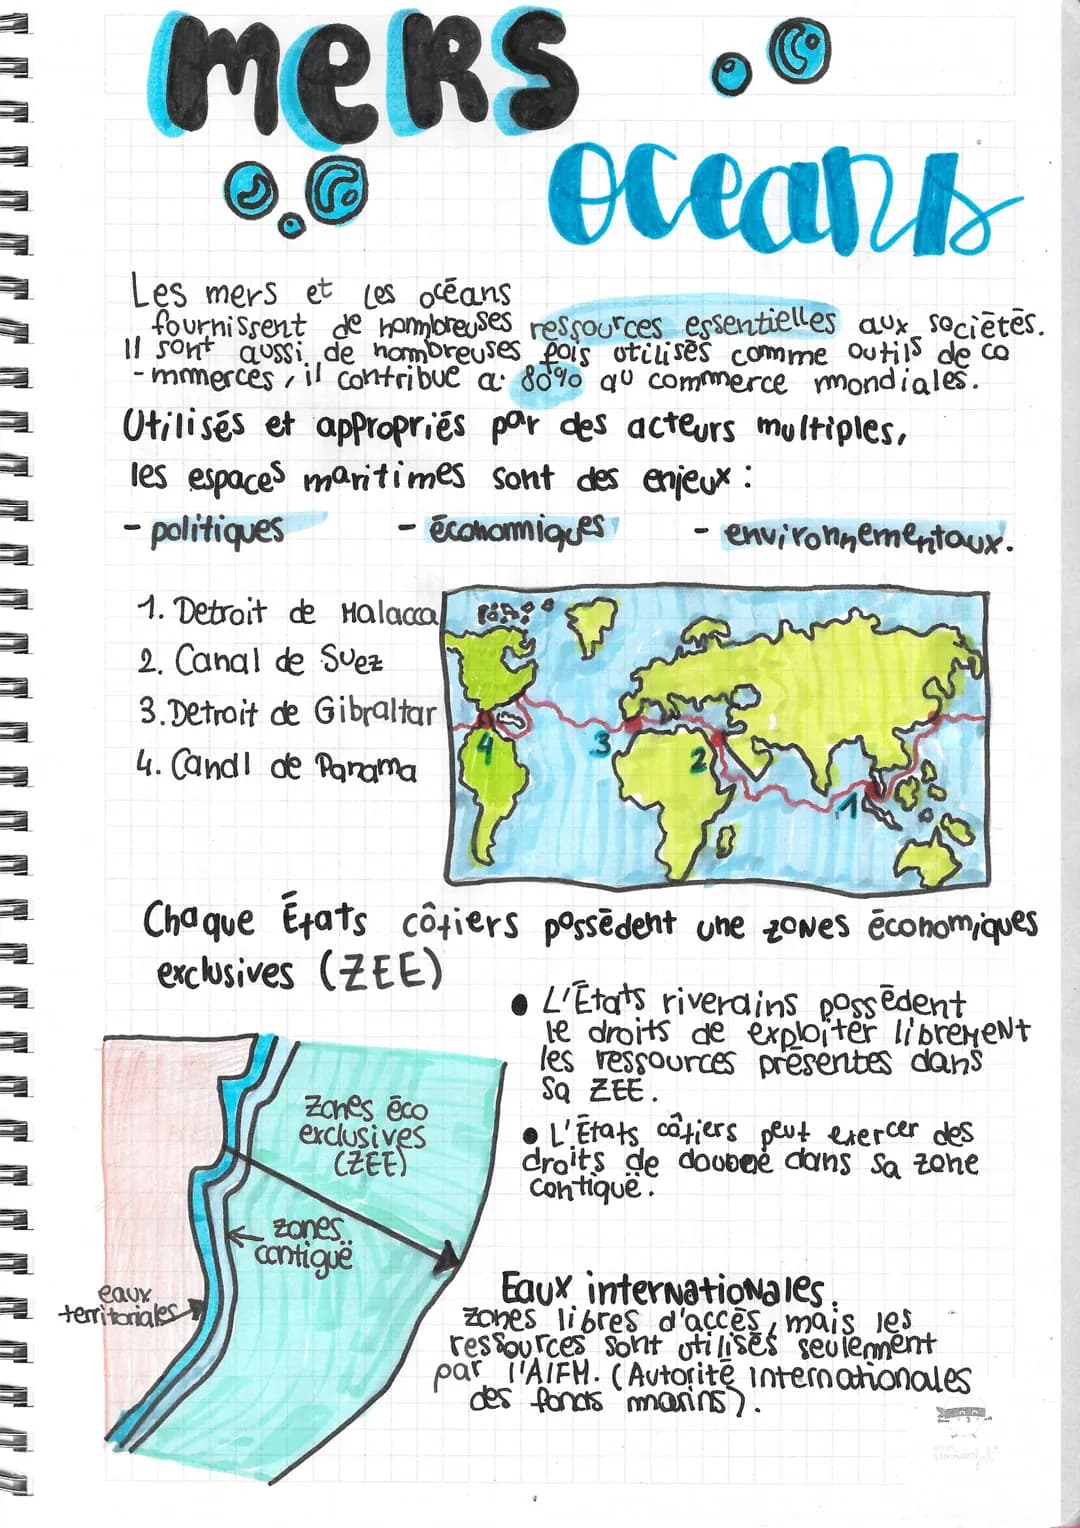 meRS
oceans
Les mers et les océans
fournissent de nombreuses ressources essentielles aux sociétés.
Il sont aussi de nombreuses fois utilisés comme outils de co
-mmerces, il contribue a: 80% au commerce mondiales.
Utilisés et appropriés par des acteurs multiples,
les espaces maritimes sont des enjeux :
- politiques - économiques - environnementaux.
1. Detroit de Malacca
2. Canal de Suez
3. Detroit de Gibraltar
4. Canal de Panama
4
3
2
1
Chaque États côtiers possèdent une zones économiques
exclusives (ZEE)
• L'États riverains possèdent
le droits de exploiter librement
les ressources présentes dans
sa ZEE.
• L'États côtiers peut exercer des
droits de douane dans sa zone
contiguë.
Zones éco
exclusives
(ZEE)
zones
contiguë
eaux
territoriales
Eaux internationales.
zones libres d'accès, mais les
ressources sont utilisés seulement
par l'AIFM. (Autorité internationales
des fonds marins).